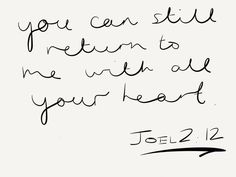 you can still
return to
me with all
your heart.
JOEL 2:12